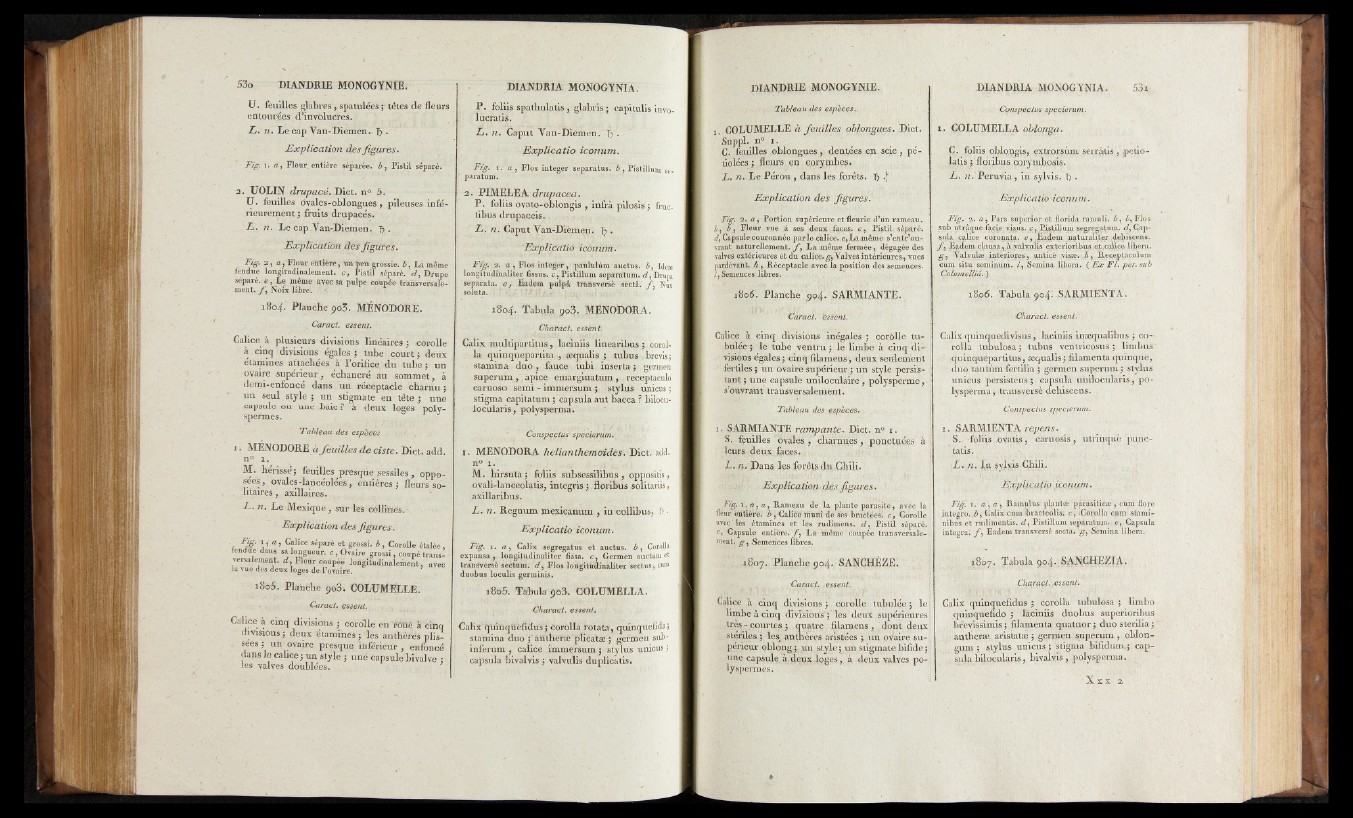 530 DIANDRIE MONOGYNIE.
U. feuilles glabres, spatulées; têtes de fleurs
entourées d'involucres.
L. n. Le cap Van-Diemen. ♄.
Explication des figures.
Fig. 1. a, Fleur entière séparée. b, Pistil séparé.
2. UOLIN drupacé. Dict. n° 5.
U. feuilles ovales-oblongues, pileuses infé-
rieurement; fruits drupacés.
L. n. Le cap Van-Diemen. ♄.
Explication des figures.
Fig. 2, a, Fleur entière, un peu grossie. b, La même
fendue longitudinalement. c, Pistil séparé. d, Drupe
séparé. e, Le même avec sa pulpe coupée transversale-
ment. f, Noix libre.
1804. Planche 903. MÉNODORE.
Caract. essent.
Calice à plusieurs divisions linéaires; corolle
à cinq divisions égales; tube court; deux
étamines attachées à l'orifice du tube; un
ovaire supérieur, échancré au sommet, à
demi-enfoncé dans un réceptacle charnu;
un seul style; un stigmate en tête; une
capsule ou une baie? à deux loges poly-
spermes.
Tableau des espèces
1. MÉNODORE à feuilles de ciste. Dict. add.
n° 1.
M. hérissé; feuilles presque sessiles, oppo-
sées, ovales-lancéolées, entières; fleurs so-
litaires, axillaires.
L. n. Le Mexique, sur les collines.
Explication des figures.
Fig. 1, a, Calice séparé et grossi. b, Corolle étalée,
fendue dans sa longueur. c, Ovaire grossi, coupé trans-
versalement. d, Fleur coupée longitudinalement, avec
la vue des deux loges de l'ovaire.
1805. Planche 903. COLUMELLE.
Caract. essent.
Calice à cinq divisions; corolle en roue à cinq
divisions; deux étamines; les anthères plis-
sées; un ovaire presque inférieur, enfoncé
dans le calice; un style; une capsule bivalve;
les valves doublées.
DIANDRIA MONOGYNIA.
P. foliis spathulatis, glabris; capitulis invo-
lucratis.
L. n. Caput Van-Diemen. ♄.
Explicatio iconum.
Fig. 1. a, Flos integer separatus. b, Pistillum se-
paratum.
2. PIMELEA drupacea.
P. foliis ovato-oblongis, infrà pilosis; fruc-
tibus drupaceis.
L. n. Caput Van-Diemen. ♄.
Explicatio iconum.
Fig. 2. a, Flos integer, paululùm auctus. b, Idem
longitudinaliter fissus. c, Pistillum separatum. d, Drupa
separata. e, Eadem pulpâ transversè sectâ. f, Nux
soluta.
1804. Tabula 903. MENODORA.
Charact. essent.
Calix multipartitus, laciniis linearibus; corol-
la quinquepartita, æqualis; tubus brevis;
stamina duo, fauce tubi inserta; germen
superum, apice emarginatum, receptaculo
carnoso semi-immersum; stylus unicus;
stigma capitatum; capsula aut bacca? bilocu-
locularis, polysperma.
Conspectus specierum.
1. MENODORA helianthemoides. Dict. add.
n° 1.
M. hirsuta; foliis subsessilibus, oppositis,
ovali-lanceolatis, integris; floribus solitariis,
axillaribus.
L. n. Regnum mexicanum, in collibus. ♄.
Explicatio iconum.
Fig. 1. a, Calix segregatus et auctus. b, Corolla
expansa, longitudinaliter fissa. c, Germen auctum et
transversè sectum. d, Flos longitudinaliter sectus, cum
duobus loculis germinis.
1805. Tabula 903. COLUMELLA.
Charact. essent.
Calix quinquefidus; corolla rotata, quinquefida;
stamina duo; antheræ plicatæ; germen sub-
inferum, calice immersum; stylus unicus;
capsula bivalvis; valvulis duplicatis.
DIANDRIE MONOGYNIE.
Tableau des espèces.
1. COLUMELLE à feuilles oblongues. Dict.
Suppl. n° 1.
C. feuilles oblongues, dentées en scie, pé-
tiolées; fleurs en corymbes.
L. n. Le Pérou, dans les forêts. ♄.
Explication des figures.
Fig. 2. a, Portion supérieure et fleurie d'un rameau.
b, b, Fleur vue à ses deux faces. c, Pistil séparé.
d, Capsule couronnée par le calice. e, La même s'entr'ou-
vrant naturellement. f, La même fermée, dégagée des
valves extérieures et du calice. g, Valves intérieures, vues
pardevant. h, Réceptacle avec la position des semences.
i, Semences libres.
1806. Planche 904. SARMIANTE.
Caract. essent.
Calice à cinq divisions inégales; corolle tu-
bulée; le tube ventru; le limbe à cinq di-
visions égales; cinq filamens, deux seulement
fertiles; un ovaire supérieur; un style persis-
tant; une capsule uniloculaire, polysperme,
s'ouvrant transversalement.
Tableau des espèces.
1. SARMIANTE rampante. Dict. n° 1.
S. feuilles ovales, charnues, ponctuées à
leurs deux faces.
L. n. Dans les forêts du Chili.
Explication des figures.
Fig. 1. a, a, Rameau de la plante parasite, avec la
fleur entière. b, Calice muni de ses bractées. c, Corolle
avec les étamines et les rudimens. d, Pistil séparé.
e, Capsule entière. f, La même coupée transversale-
ment. g, Semences libres.
1807. Planche 904. SANCHÈZE.
Caract. essent.
Calice à cinq divisions; corolle tubulée; le
limbe à cinq divisions; les deux supérieures
très-courtes; quatre filamens, dont deux
stériles; les anthères aristées; un ovaire su-
périeur oblong; un style; un stigmate bifide;
une capsule à deux loges, à deux valves po-
lyspermes.
DIANDRIA MONOGYNIA. 531
Conspectus specierum.
1. COLUMELLA oblonga.
C. foliis oblongis, extrorsùm serratis, petio-
latis; floribus corymbosis.
L. n. Peruvia, in sylvis. ♄.
Explicatio iconum.
Fig. 2. a, Pars superior et florida ramuli. b, b, Flos
sub utrâque facie visus. c, Pistillum segregatum. d, Cap-
sula calice coronata. e, Eadem naturaliter dehiscens.
f, Eadem clausa, à valvulis exterioribus et calice libera.
g, Valvulæ interiores, anticè visæ. h, Receptaculum
cum situ seminum. i, Semina libera. (Ex Fl. per. sub
Columellia.)
1806. Tabula 904. SARMIENTA.
Charact. essent.
Calix quinquedivisus, laciniis inæqualibus; co-
rolla tubulosa; tubus ventricosus; limbus
quinquepartitus, æqualis; filamenta quinque,
duo tantùm fertilia; germen superum; stylus
unicus persistens; capsula unilocularis, po-
lysperma, transversè dehiscens.
Conspectus specierum.
1. SARMIENTA repens.
S. foliis ovatis, carnosis, utrinquè punc-
tatis.
L. n. In sylvis Chili.
Explicatio iconum.
Fig. 1. a, a, Ramulus plantæ parasiticæ, cum flore
integro. b, Calix cum bracteolis. c, Corolla cum stami-
nibus et rudimentis. d, Pistillum separatum. e, Capsula
integra. f, Eadem transversè secta. g, Semina libera.
1807. Tabula 904. SANCHEZIA.
Charact. essent.
Calix quinquefidus; corolla tubulosa; limbo
quinquefido; laciniis duobus superioribus
brevissimis; filamenta quatuor; duo sterilia;
antheræ aristatæ; germen superum, oblon-
gum; stylus unicus; stigma bifidum; cap-
sula bilocularis, bivalvis, polysperma.
Xxx 2